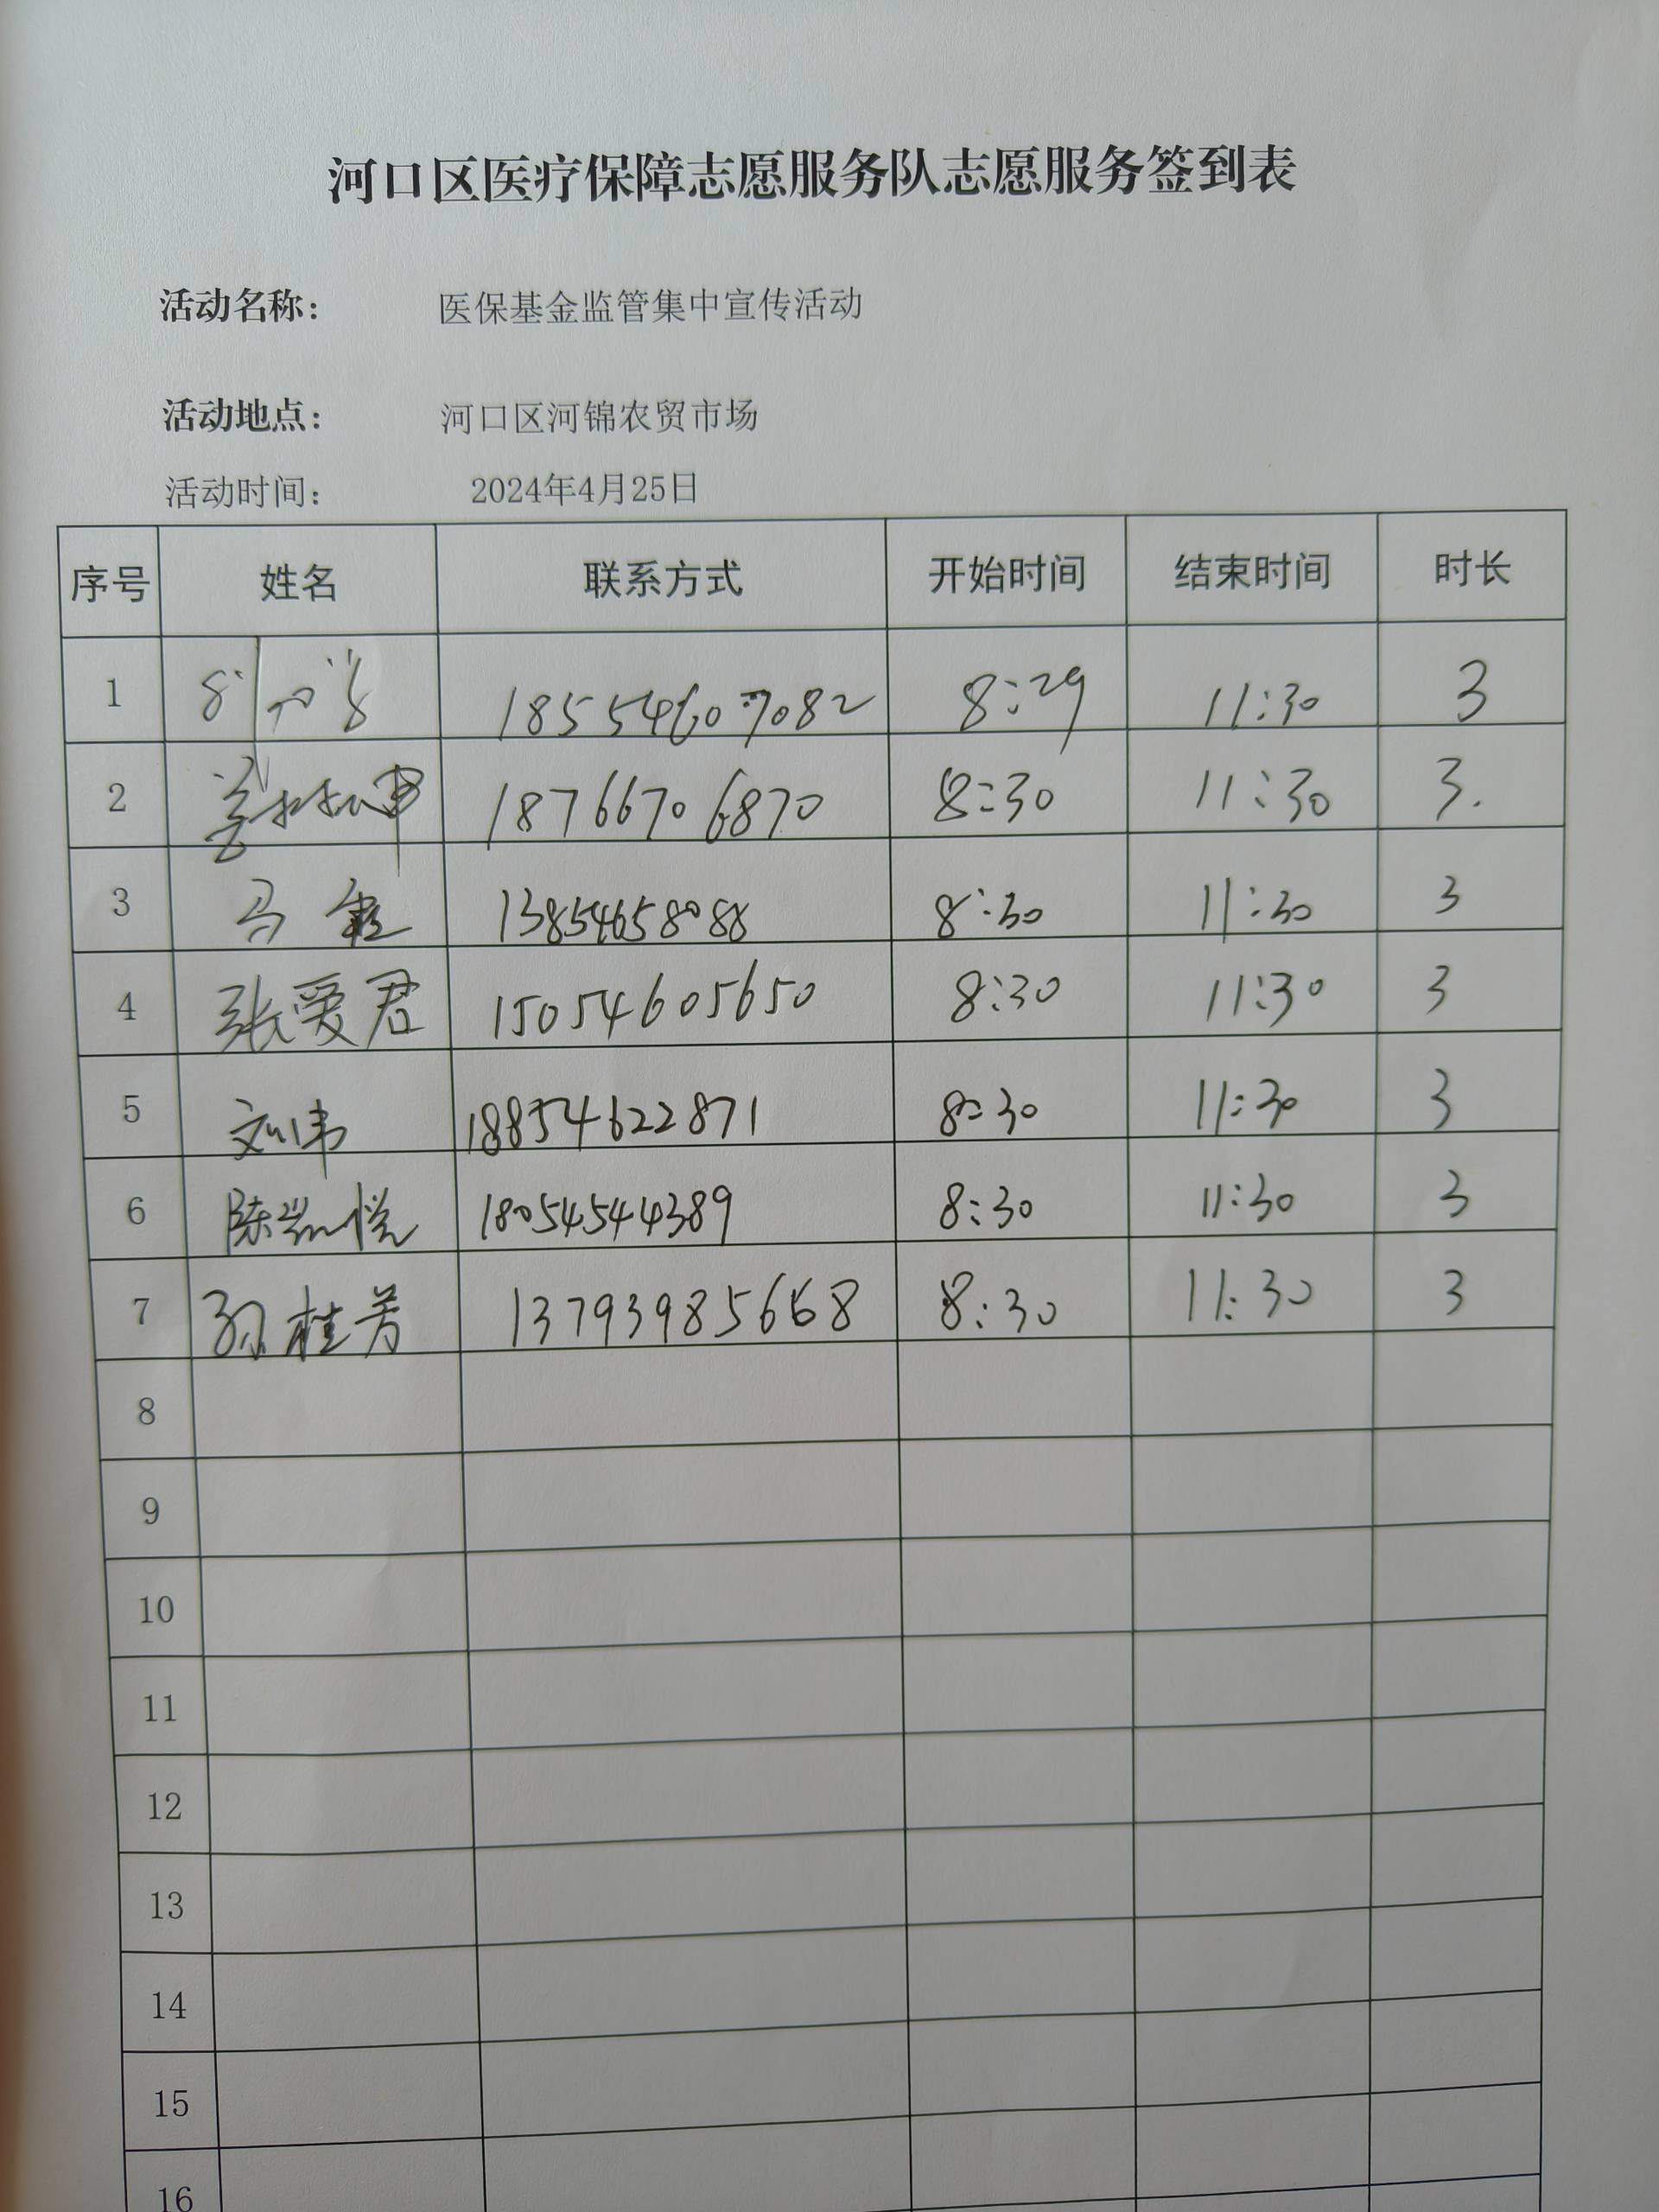 河口区医疗保障志愿服务队志愿服务签到表
活动名称： 医保基金监管集中宣传活动
活动地点： 河口区河锦农贸市场
活动时间： 2024年4月25日
序号 姓名 联系方式 开始时间 结束时间 时长
1 18554607082 8:29 11:30 3
2 18766706870 8:30 11:30 3.
3 马 13854658088 8:30 11:30 3
4 张爱君 15054605650 8:30 11:30 3
5 刘伟 18854622871 8:30 11:30 3
6 陈凯悦 18054544389 8:30 11:30 3
7 孙桂芳 13793985668 8:30 11:30 3
8
9
10
11
12
13
14
15
16